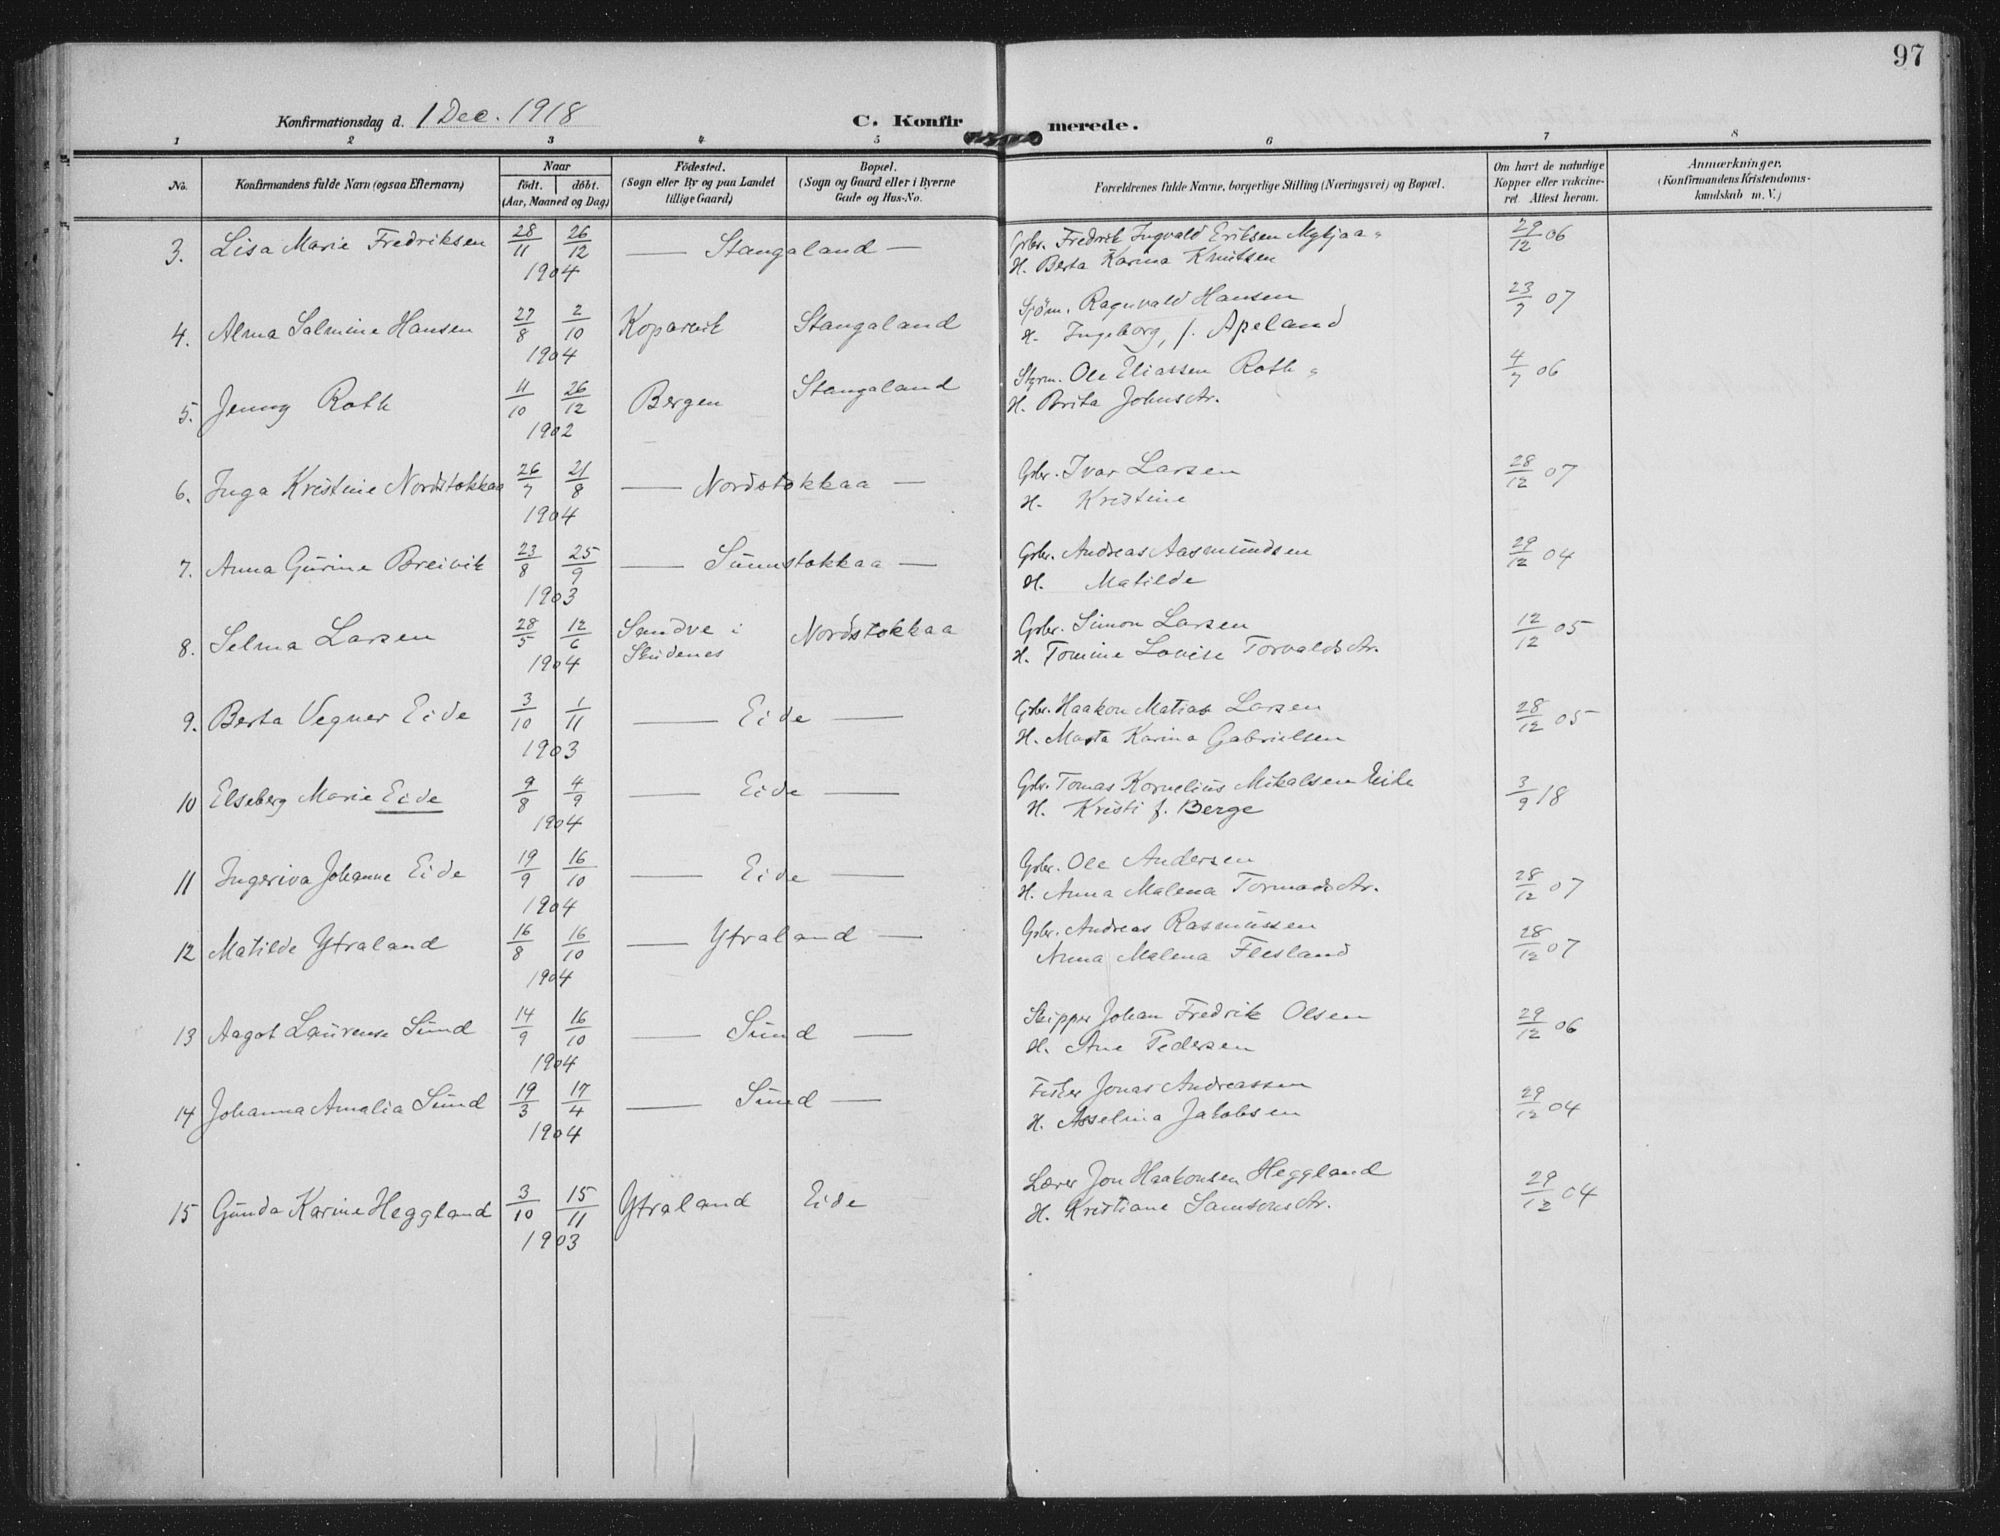 97
Konfirmationsdag d. 1 Dec. 1918 C. Konfirmerede.
1 2 3 4 5 6 7 8
No. Konfirmandens fulde Navn (ogsaa Efternavn) Naar födt. döbt. (Aar, Maaned og Dag) Födested. (Sogn eller By og paa Landet tillige Gaard) Bopæl. (Sogn og Gaard eller i Byerne Gade og Hus-No. Forældrenes fulde Navne, borgerlige Stilling (Næringsvei) og Bopæl. Om havt de naturlige Kopper eller vakcineret. Attest herom. Anmærkninger. (Konfirmandens Kristendomskundskab m. V.)
3. Lisa Marie Fredriksen 28/11 26/12 — Stangaland — Gbr. Fredrik Ingvald Eriksen Mykjaa 29/12 06
1904 H. Berta Karina Knutsen
4. Alma Salmine Hansen 27/8 2/10 Kopervik Stangaland Sjøm. Ragnvald Hansen 23/7 07
1904 H. Ingeborg, f. Apeland
5. Jenny Roth 11/10 26/12 Bergen Stangaland Styrm. Ole Eliassen Roth 4/7 06
1902 H. Brita Johnsdtr.
6. Inga Kristine Nordstokkaa 26/7 21/8 — Nordstokkaa — Gbr. Ivar Larsen 28/12 07
1904 H. Kristine
7. Anna Gurine Breivik 23/8 25/9 — Sunnstokkaa — Gbr. Andreas Aasmundsen 29/12 04
1903 H. Matilde
8. Selma Larsen 28/5 12/6 Sandve i Skudenes Nordstokkaa Gbr. Simon Larsen 12/12 05
1904 H. Tomine Lovise Torvaldsdtr.
9. Berta Vegner Eide 3/10 1/11 — Eide — Gbr. Haakon Matias Larsen 28/12 05
1903 H. Marta Karina Gabrielsen
10 Elseberg Marie Eide 9/8 4/9 — Eide — Gbr. Tomas Kornelius Mikalsen Eide 3/9 18
1904 H. Kristi f. Berge
11 Ingeriva Johanne Eide 19/9 16/10 — Eide — Gbr. Ole Andersen 28/12 07
1904 H. Anna Malena Tormodsdtr.
12 Matilde Ytraland 16/8 16/10 — Ytraland — Gbr. Andreas Rasmussen 28/12 07
1904 Anna Malena Flesland
13 Aagot Laurense Sund 14/9 16/10 — Sund — Skipper Johan Fredrik Olsen 29/12 06
1904 H. Ane Pedersen
14 Johanna Amalia Sund 19/3 17/4 — Sund — Fisker Jonas Andreassen 29/12 04
1904 H. Asselina Jakobsen
15 Gunda Karine Heggland 3/10 15/11 Ytraland Eide Lærer Jon Haakonsen Heggland 29/12 04
1903 H. Kristiane Samsonsdtr.